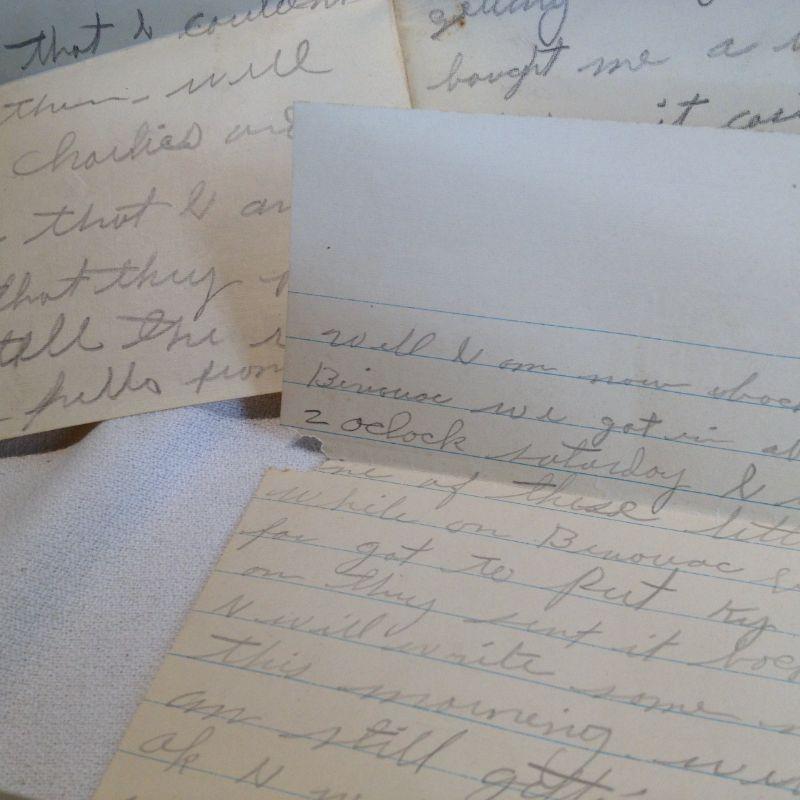 that I couldn't
them - will
Charlies and
that I am
that they
tell the
- fells from
getting
bought me a
it cou
Well I am now back
Binouac we got in ab
2 oclock saturday & I
one of these lett
while on Binouac &
for got to Put Ky
on they sent it back
I will write some
this morning well
am still gett
ok I